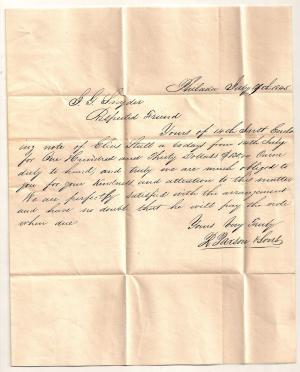 Philada July 1845
J. G. Snyder
Respected Friend
Yours of 14th Inst Enclo
ing note of Elias Hull a 60 days from 14th July
for One Hundred and Thirty Dollars & came
duly to hand, and truly we are much obliged to
you for your kindness and attention to this matter
We are perfectly satisfied with the arrangement
and have no doubt that he will pay the note
when due
Yours Very Truly
R Paxson & Sons